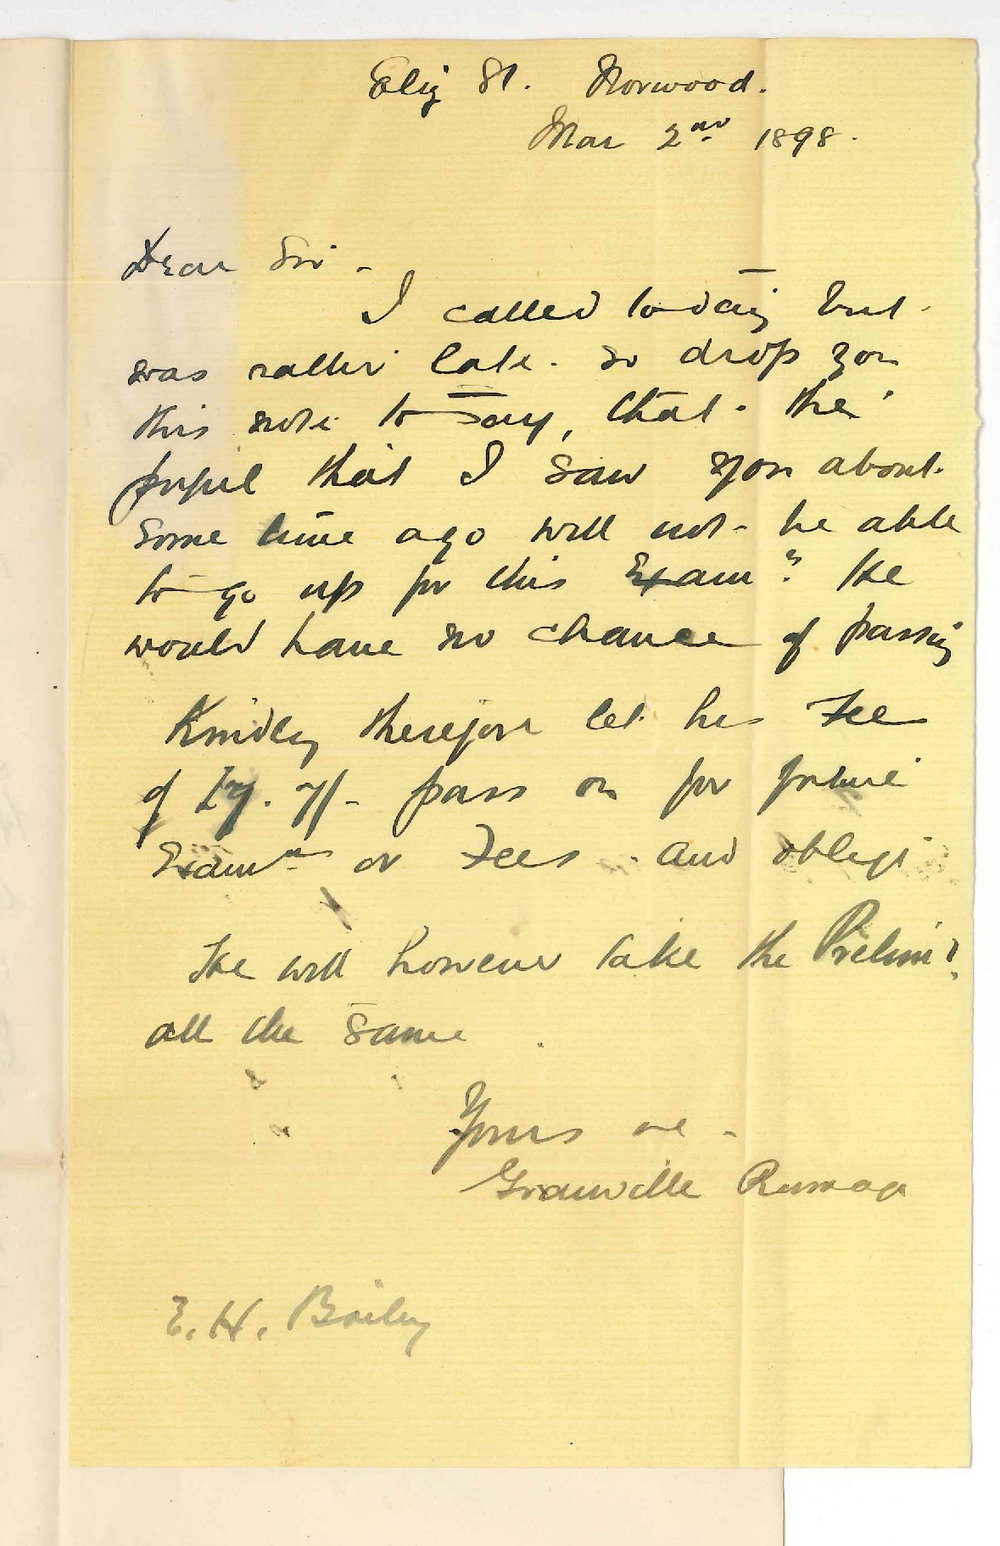 Eliz St. Norwood.
Mar 2nd 1898.
Dear Sir -
I called to-day but
was rather late. so drop you
this note to say, that the
pupil that I saw you about
some time ago will not be able
to go up for this Exam? He
would have no chance of passing
Kindly therefore let his Fee
of 7/- pass on for future
Examns or Fees - and oblige
He will however take the Prelim?
all the same
Yours
Granville
E. H. Bailey